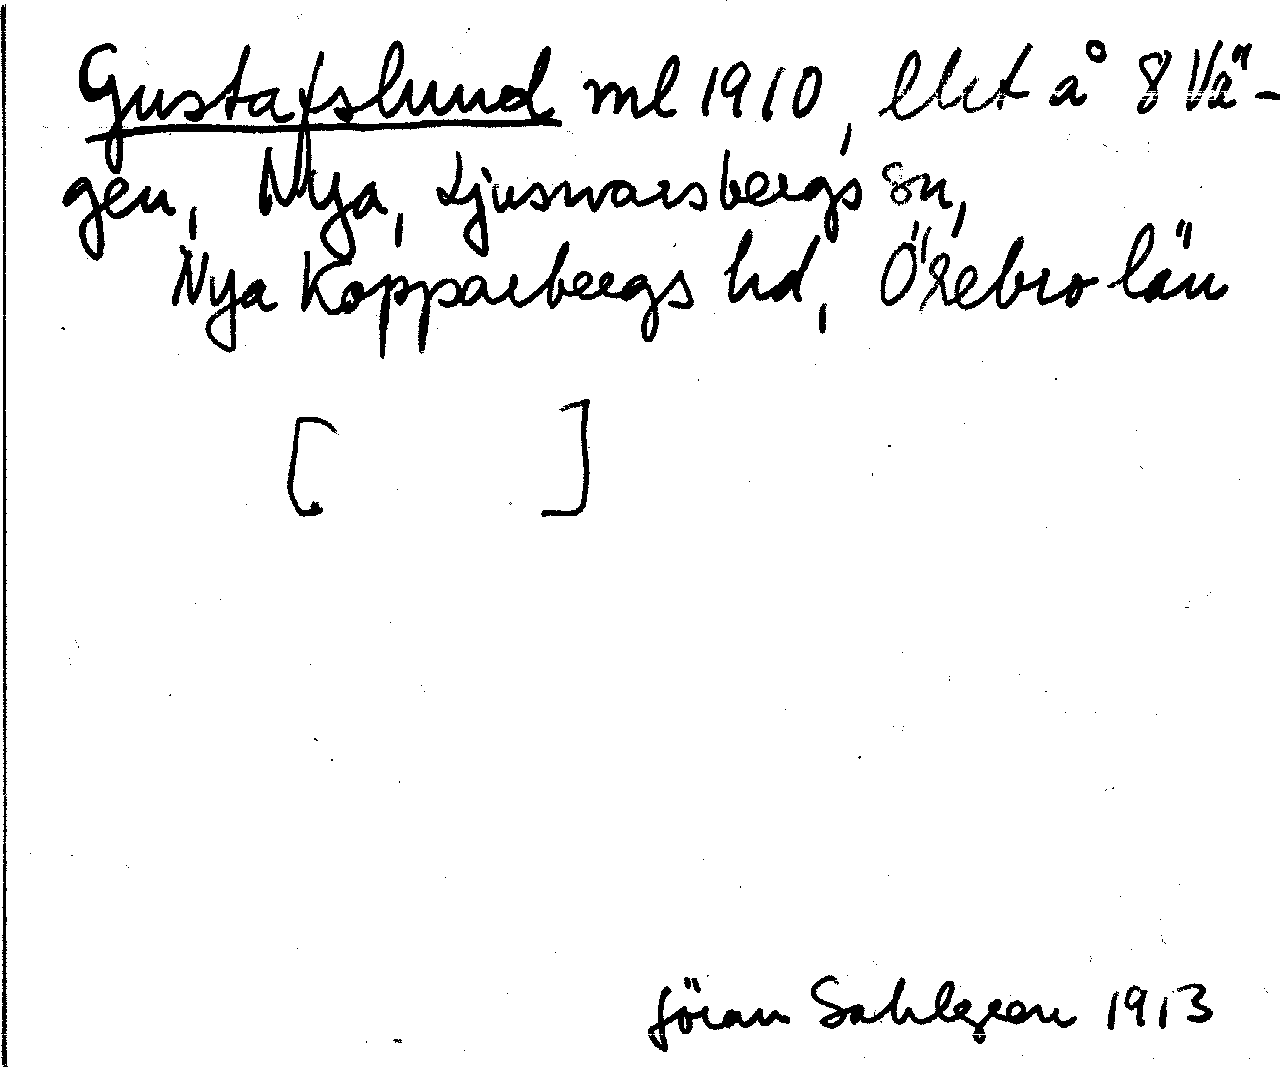 Gustafslund ml 1910, lht å 8 Vä-
gen, Nya, Ljusnarsbergs sn,
Nya Kopparbergs hd, Örebro län
[ ]
Jöran Sahlgren 1913